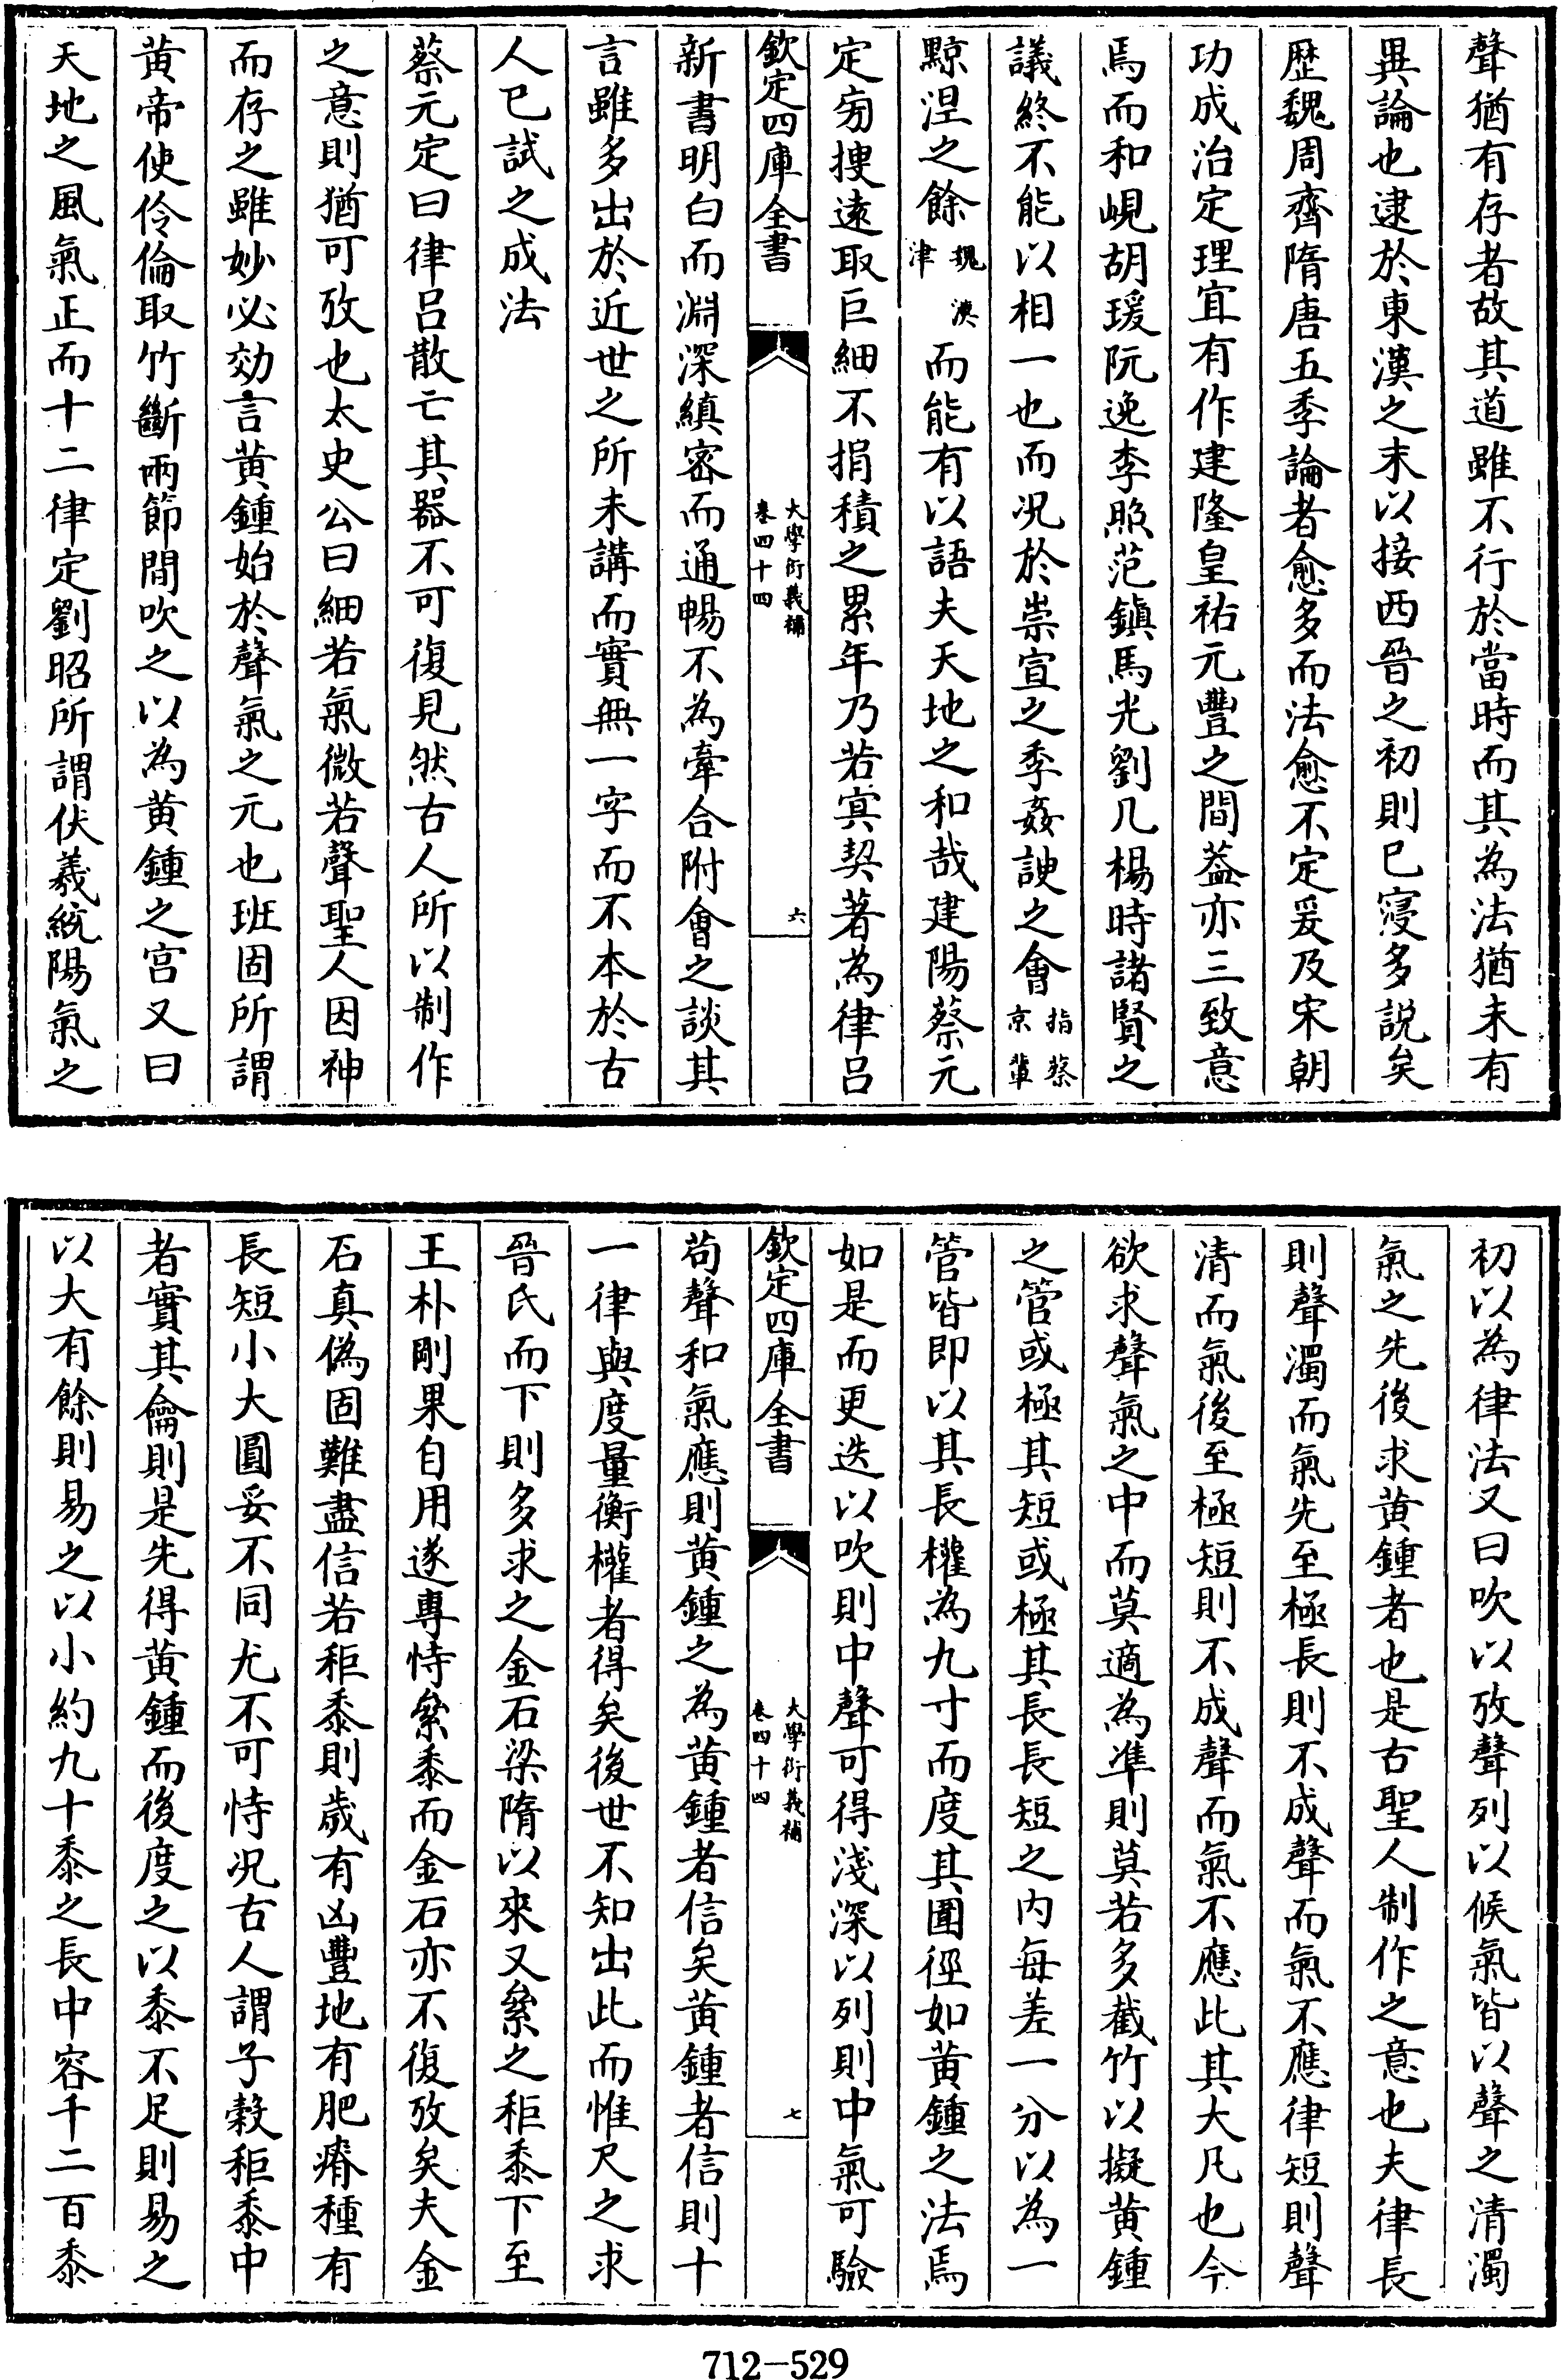 聲猶有存者故其道雖不行於當時而其為法猶未有
異論也逮於東漢之末以接西晉之初則已寖多說矣
歴魏周齊隋唐五季論者愈多而法愈不定爰及宋朝
功成治定理宜有作建隆皇祐元豐之間葢亦三致意
焉而和峴胡瑗阮逸李照范鎮馬光劉几楊時諸賢之
議終不能以相一也而况於崇宣之季姦諛之會指蔡京輩
黥涅之餘魏漢津而能有以語夫天地之和哉建陽蔡元
定旁搜逺取巨細不捐積之累年乃若㝠契著為律吕
欽定四庫全書
大學衍義補
卷四十四
六
新書明白而淵深縝宻而通暢不為牽合附㑹之談其
言雖多出於近世之所未講而實無一字而不本於古
人已試之成法
蔡元定曰律吕散亡其器不可復見然古人所以制作
之意則猶可攷也太史公曰細若氣微若聲聖人因神
而存之雖妙必効言黄鍾始於聲氣之元也班固所謂
黄帝使伶倫取竹斷兩節間吹之以為黄鍾之宫又曰
天地之風氣正而十二律定劉昭所謂伏羲統陽氣之
初以為律法又曰吹以攷聲列以候氣皆以聲之清濁
氣之先後求黄鍾者也是古聖人制作之意也夫律長
則聲濁而氣先至極長則不成聲而氣不應律短則聲
清而氣後至極短則不成聲而氣不應此其大凡也今
欲求聲氣之中而莫適為凖則莫若多截竹以擬黄鍾
之管或極其短或極其長長短之内每差一分以為一
管皆即以其長權為九寸而度其圍徑如黄鍾之法焉
如是而更迭以吹則中聲可得淺深以列則中氣可驗
欽定四庫全書
大學衍義補
卷四十四
七
苟聲和氣應則黄鍾之為黄鍾者信矣黄鍾者信則十
一律與度量衡權者得矣後世不知出此而惟尺之求
晉氏而下則多求之金石梁隋以來又絫之秬黍下至
王朴剛果自用遂專恃絫黍而金石亦不復攷矣夫金
石真偽固難盡信若秬黍則歲有凶豐地有肥瘠種有
長短小大圓妥不同尤不可恃况古人謂子榖秬黍中
者實其龠則是先得黄鍾而後度之以黍不足則易之
以大有餘則易之以小約九十黍之長中容千二百黍
712-529